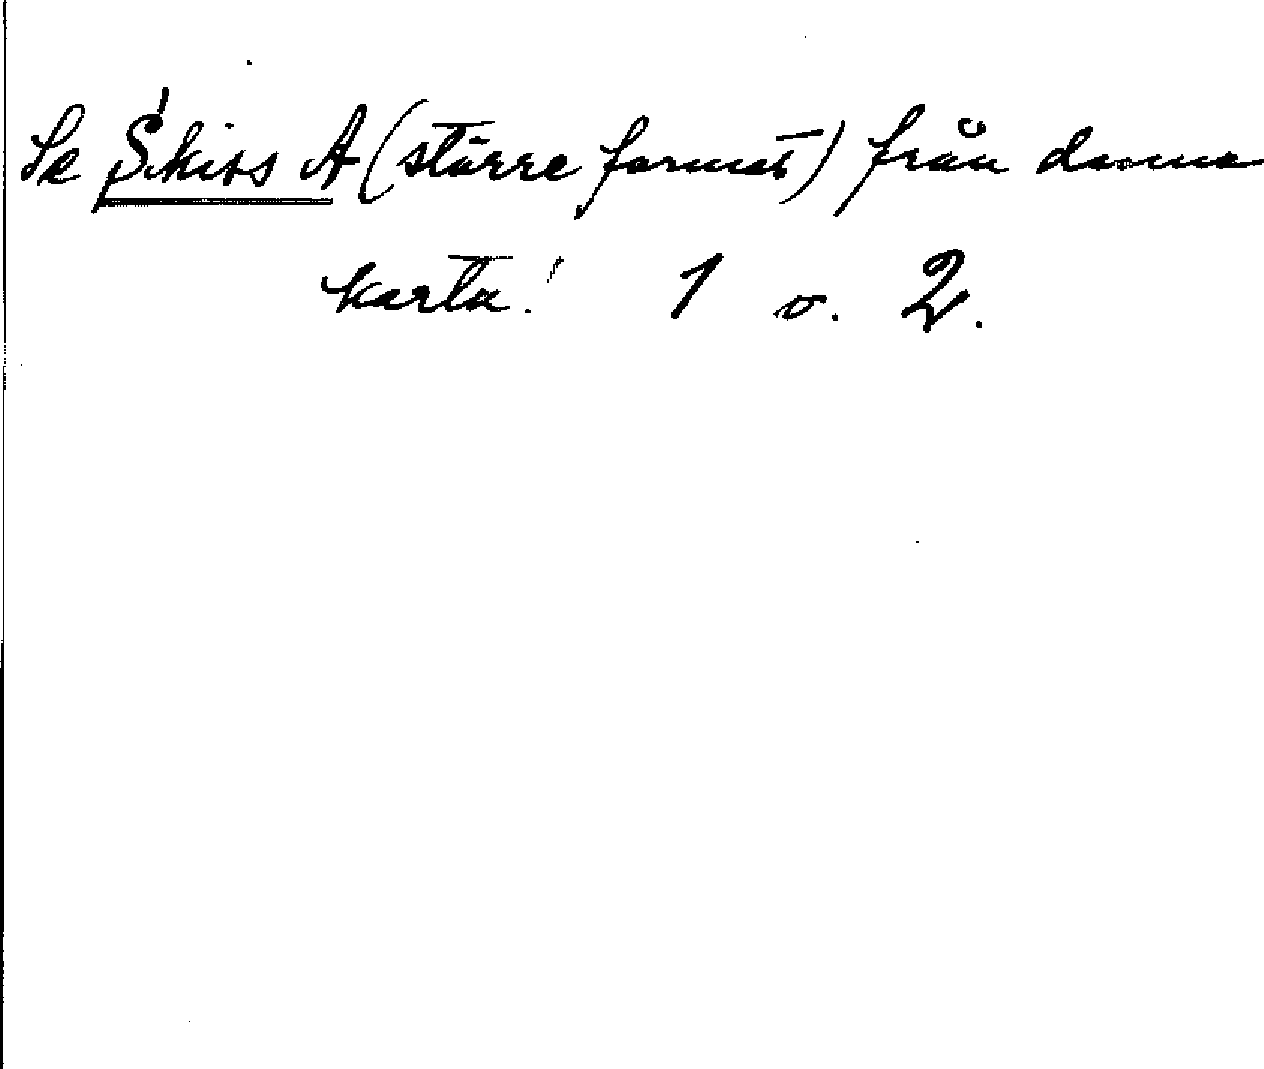 Se Skiss A (större format) från denna
karta! 1 o. 2.